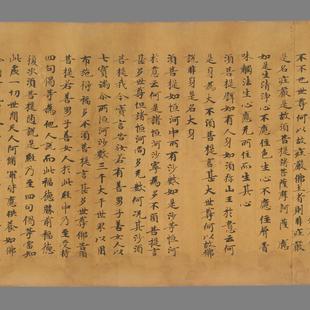 不不也世尊何以故莊嚴佛土者則非莊嚴
是名莊嚴是故須菩提諸菩薩摩訶薩應
如是生清淨心不應住色生心不應住聲香
味觸法生心應无所住而生其心
須菩提譬如有人身如須弥山王於意云何
是身為大不須菩提言甚大世尊何以故佛
說非身是名大身
須菩提如恒河中所有沙數如是沙等恒河
於意云何是諸恒河沙寧為多不須菩提言
甚多世尊但諸恒河尚多无數何況其沙須
菩提我今實言告汝若有善男子善女人以
七寶滿尒所恒河沙數三千大千世界以用
布施得福多不須菩提言甚多世尊佛告須
菩提若善男子善女人於此經中乃至受持
四句偈等為他人說而此福德勝前福德
復次須菩提隨說是經乃至四句偈等當知
此處一切世間天人阿脩羅皆應供養如佛